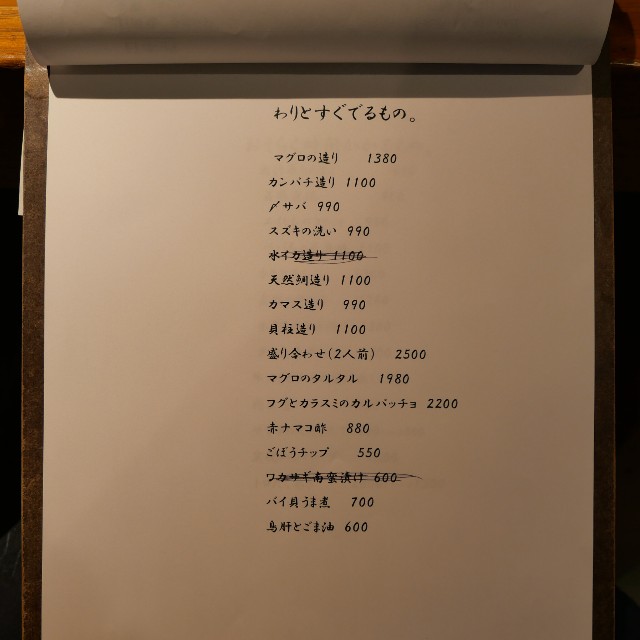 わりとすぐでるもの。
マグロの造り 1380
カンパチ造り 1100
〆サバ 990
スズキの洗い 990
水イカ造り 1100
天然鯛造り 1100
カマス造り 990
貝柱造り 1100
盛り合わせ(2人前) 2500
マグロのタルタル 1980
フグとカラスミのカルパッチョ 2200
赤ナマコ酢 880
ごぼうチップ 550
ワカサギ南蛮漬け 600
バイ貝うま煮 700
鳥肝とごま油 600